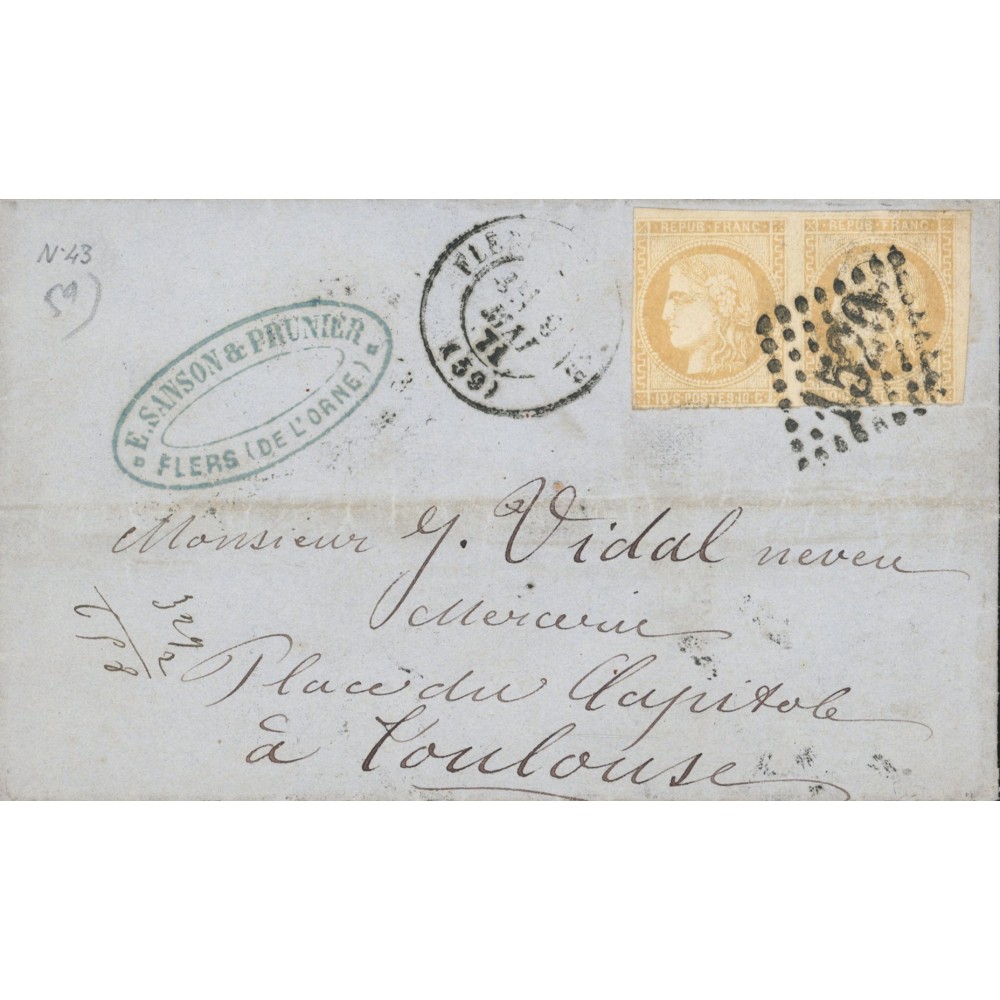 N·43
59)
E. SANSON & PRUNIER
FLERS (DE L'ORNE.)
FLERS
MAI
71
REPUB·FRANC·
10·C·POSTES·10·C·
REPUB·FRANC·
1522
Monsieur J. Vidal neveu
Mercerie
Place du Capitole
à Toulouse